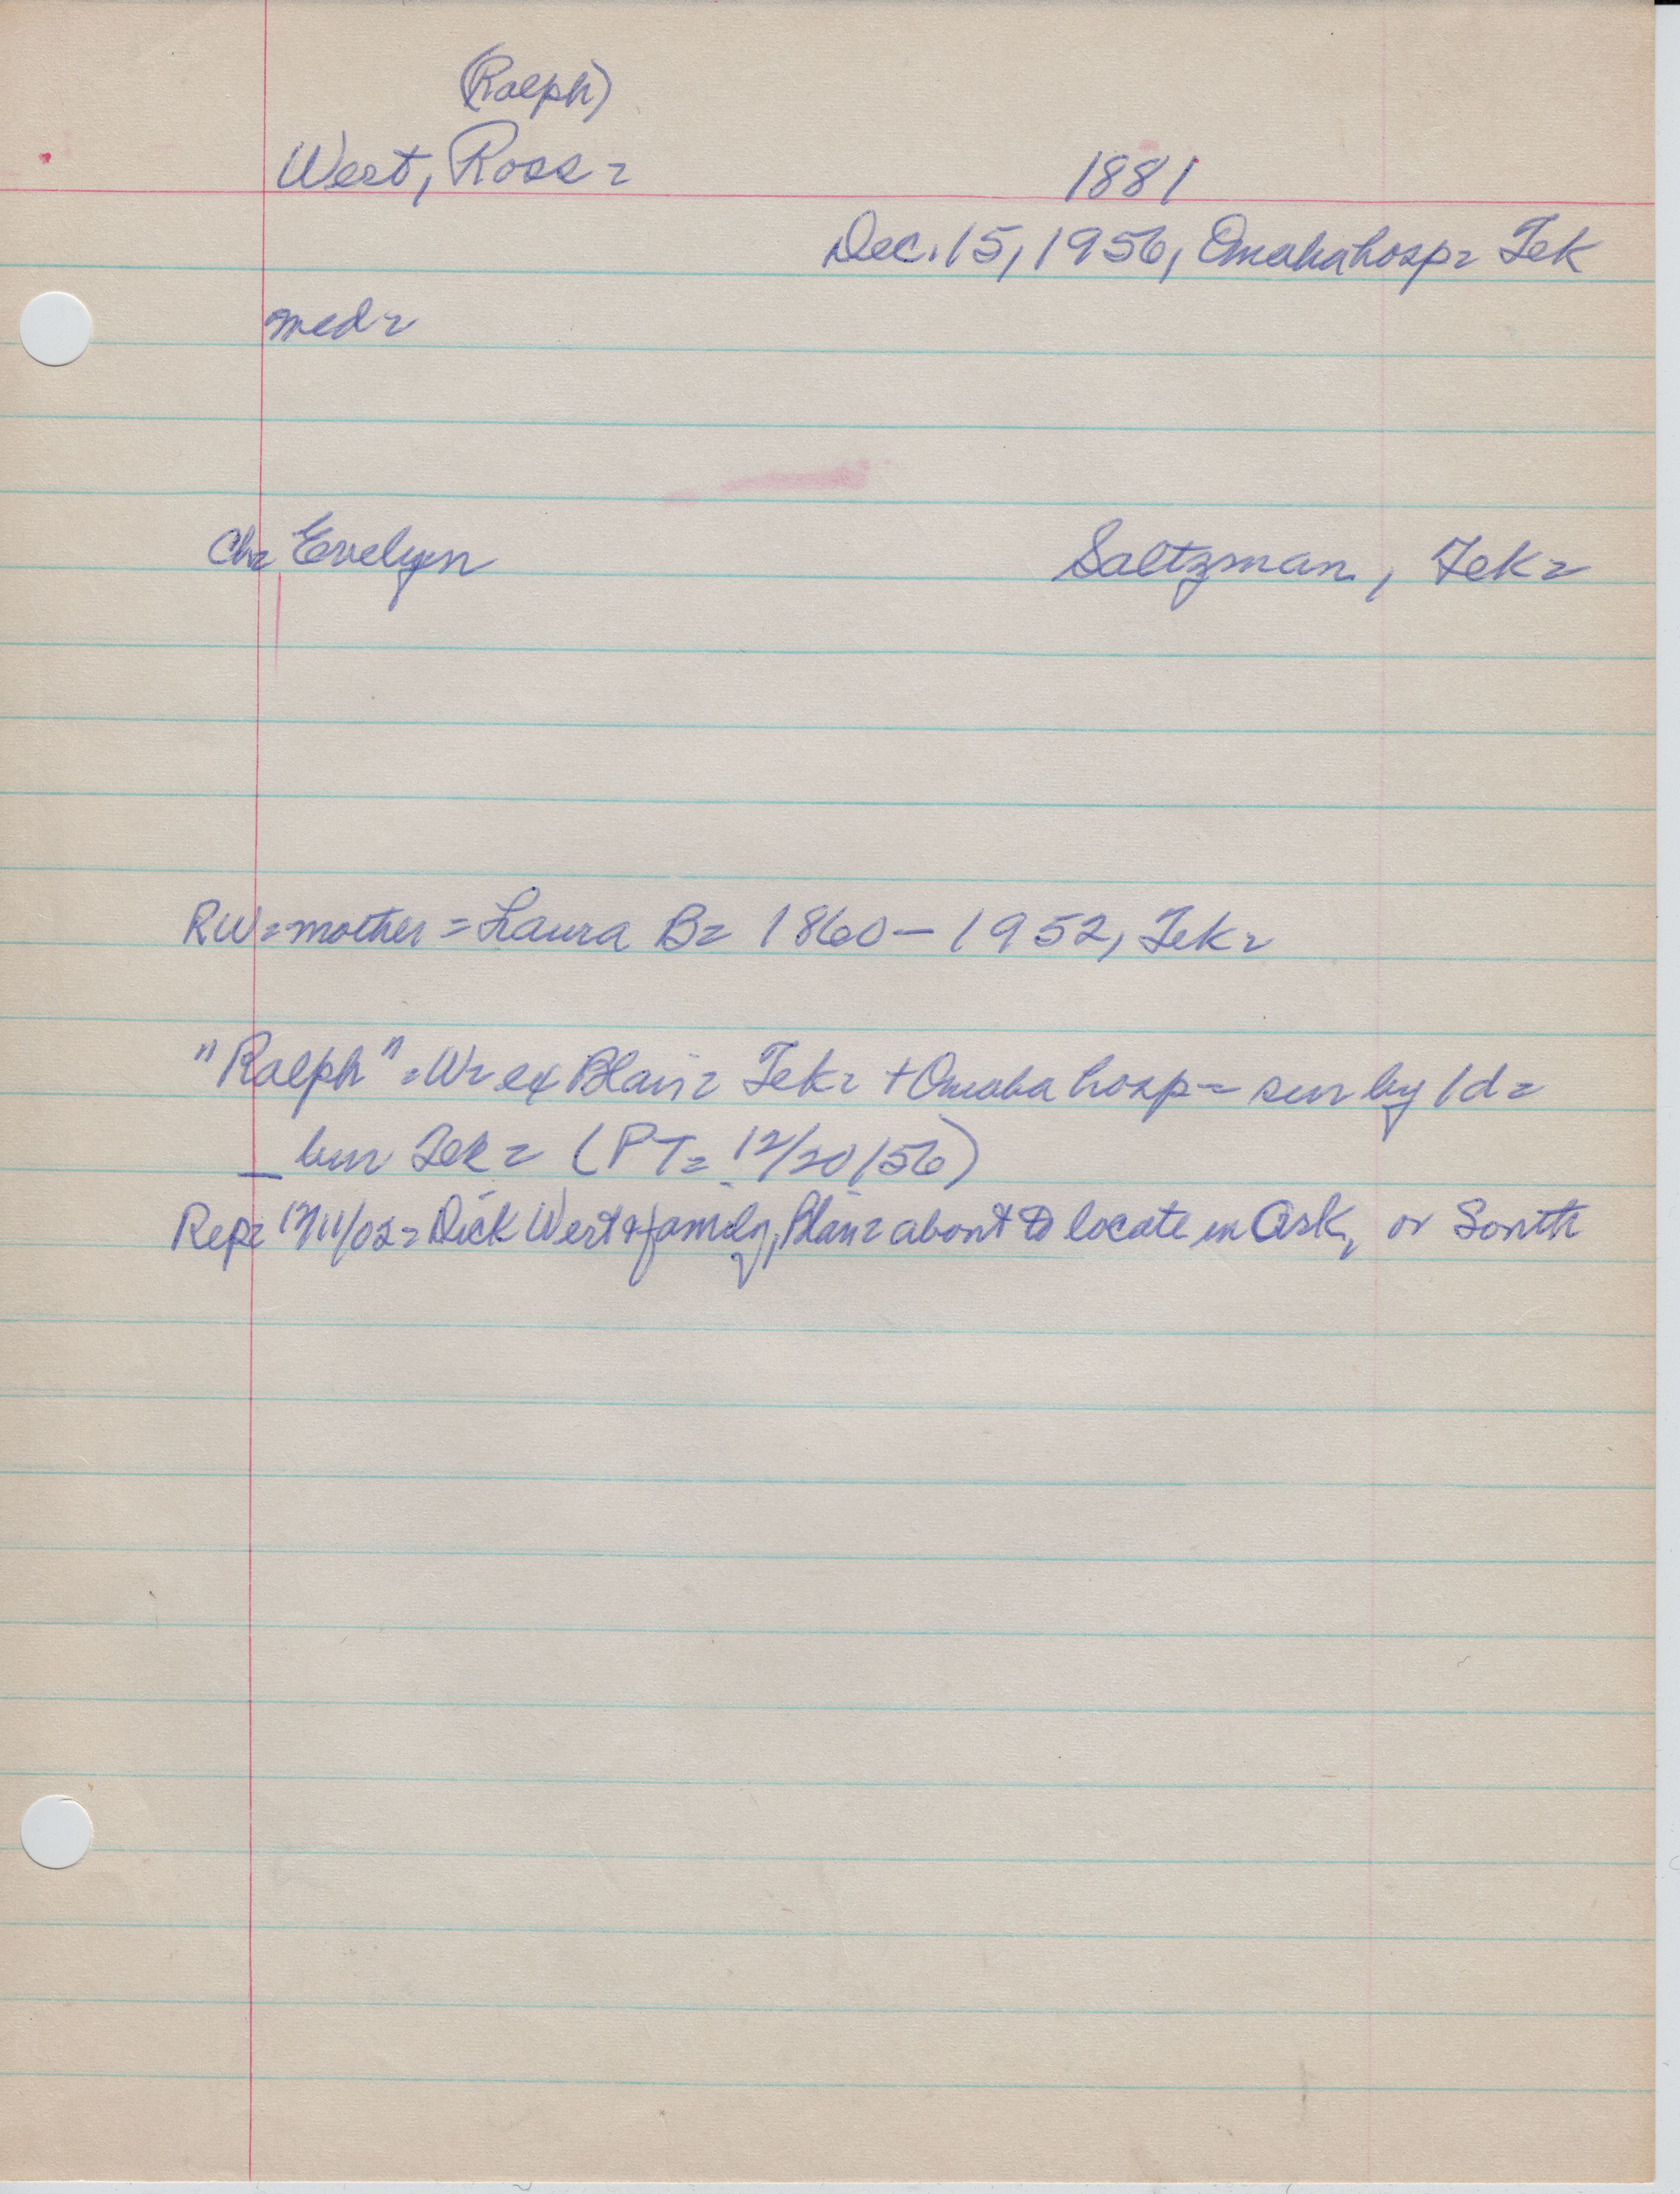 (Ralph)
West, Ross =
1881
Dec. 15, 1956, Omaha hosp = Tek
med =
Ch = Evelyn
Saltzman, Tek =
RW = mother = Laura B = 1860 - 1952, Tek =
"Ralph" = W = ex Blair = Tek = + Omaha hosp = sur by 1 d =
bur Tek = (PT = 12/20/56)
Rep = /02 = Dick West & family, Blair = about to locate in Ark, or South